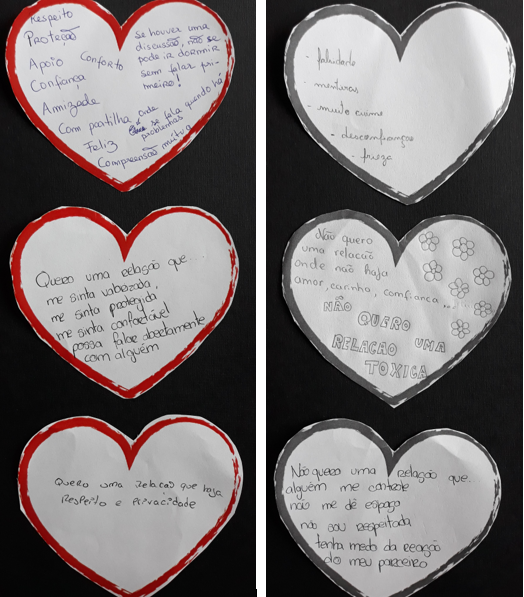 Respeito
Proteção
Apoio Conforto
Confiança
Amizade
Com partilha
Feliz
Compreensão mútua
Se houver uma
discussão, não se
pode ir dormir
sem falar pri-
meiro!
onde
é se fala quando há
problemas
Quero uma relação que...
me sinta valorizada,
me sinta protegida
me sinta confortável
possa falar abertamente
com alguém
Quero uma relacao que haja
Respeito e privacidade
- falsidade
- mentiras
- muito ciúme
- desconfiança
- frieza
Não quero
uma relacão
onde não haja
amor, carinho, confiança,...
NÃO
QUERO
UMA
RELACAO
TOXICA
Não quero uma relação que...
alguém me controle
não me dê espaço
não sou respeitada
tenha medo da reação
do meu parceiro